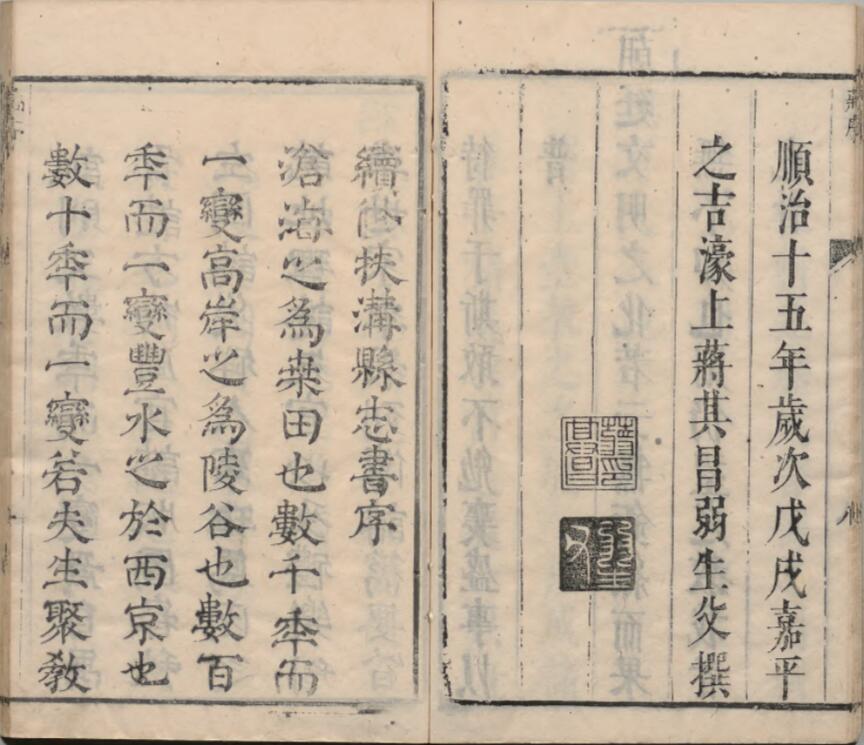 蔣序
順治十五年歲次戊戌嘉平
之吉濠上蔣其昌弱生父撰
蔣印其昌
弱生父
續修扶溝縣志書序
滄海之爲桒田也數千秊而
一變高岸之爲陵谷也數百
秊而一變豐水之於西京也
數十秊而一變若夫生聚敎